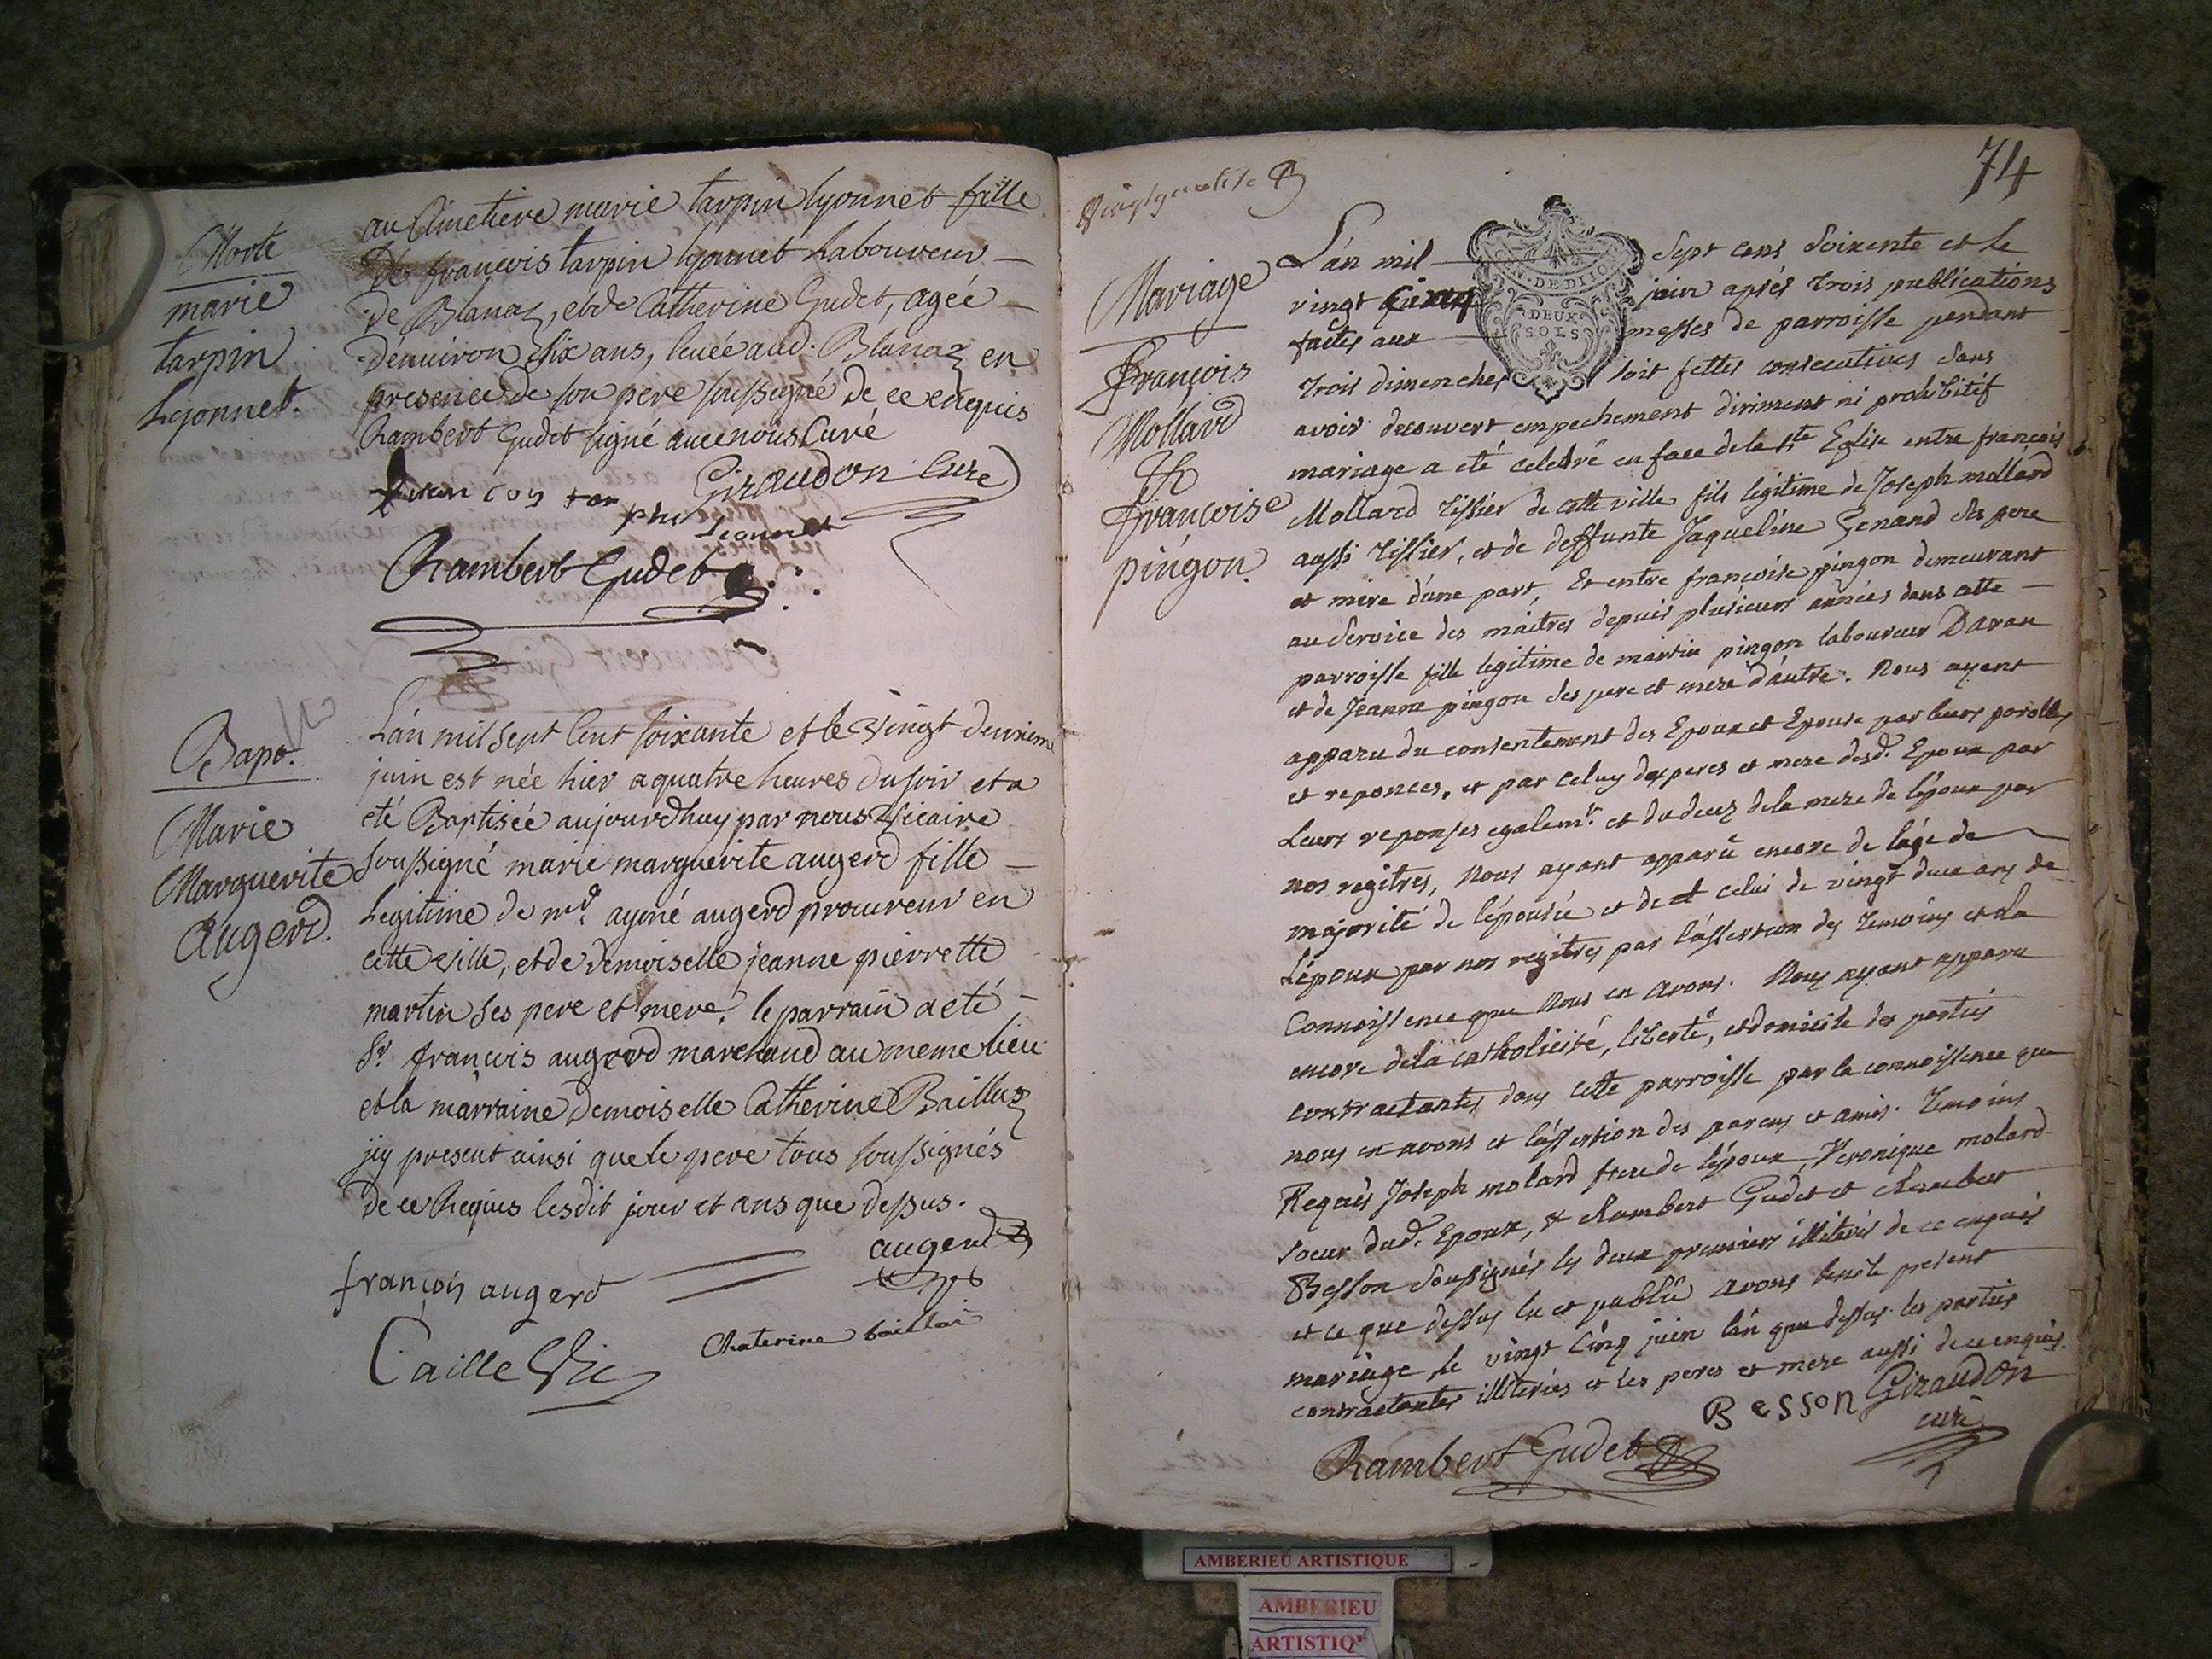 Morte
marie
tarpin
Lyonnet.
au Cimetiere marie tarpin lyonnet fille
De francois tarpin lyonnet Laboureur
de Blanaz, et de Catherine Gudet, agée
d'enuiron six ans, leuée aud. Blanaz en
presence de son pere soussigné de ce enquis
Rambert Gudet signé auec nous Curé
Giraudon Cure
francois tar
pin lionnet
Rambert Gudet
Bapt.
Marie
Marguerite
Augerd.
L'an mil sept Cent soixante et le vingt deuxieme
juin est née hier a quatre heures du soir et a
eté Baptisée aujourdhuy par nous Vicaire
soussigné marie marguerite augerd fille
Legitime de mr. aymé augerd procureur en
cette ville, et de demoiselle jeanne pierrette
martin ses pere et mere. le parrain a eté
Sr. francois augerd marchand au meme lieu
et la marraine demoiselle Catherine Baillus
jiy present ainsi que le pere tous soussignés
de ce Requis lesdit jour et ans que dessus.
augerd
françois augerd
Chaterine
Caille Vic
74
Mariage
François
Mollard
&
Françoise
pingon
L'an mil sept cens soixente et le
vingt cinq juin aprés trois publications
faites aux messes de parroisse pendant
trois dimenches soit fettes consecutives sans
avoir decouvert empechement diriment ni prohibitif
mariage a eté celebré en face de la ste Eglise entre francois
Mollard tissier de cette ville fils legitime de Joseph mollard
aussi tissier, et de deffunte Jaqueline Genand ses pere
et mere d'une part, Et entre francoise pingon demeurant
au service des maitres depuis plusieurs années dans cette
parroisse fille legitime de martin pingon laboureur
et de Jeanne pingon ses pere et mere d'autre. Nous ayent
apparu du consentement des Epoux et Epouse par leurs parolles
et reponces, et par celuy des peres et mere desd. Epoux par
Leurs reponses egalemt. et du decez de la mere de l'epoux par
nos regitres, Nous ayant apparû encore de l'age de
majorité de l'epousée et de celui de vingt deux ans de
L'epoux par nos regitres par l'assertion des temoins et la
Connoissence que Nous en avons. Nous ayant apparu
encore de la catholicité, liberté, et domicile des parties
contractantes dans cette parroisse par la connoissence que
nous en avons et l'assertion des parens et amis. Temoins
Requis Joseph molard frere de l'epoux, Veronique molard
soeur dud. Epoux, & Rambert Gudet et Rambert
Besson soussignés les deux premiers illiterés de ce enquis
et ce que dessus lu et publié avons beni le present
mariage le vingt cinq juin l'an que dessus les parties
contractantes illiterées et les peres et mere aussi de ce enquis.
Besson Giraudon
curé
Rambert Gudet
N. DE DIJON
DEUX
SOLS
AMBERIEU ARTISTIQUE
AMBERIEU
ARTISTIQ